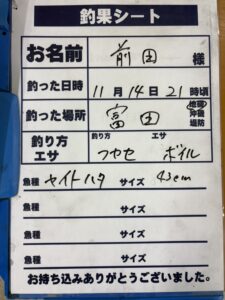 釣果シート
お名前 前田 様
釣った日時 11月14日21時頃
釣った場所 富田 地磯 沖磯 堤防
釣り方 エサ 釣り方 フカセ エサ ボイル
魚種 ヤイトハタ サイズ 43cm
魚種 サイズ
魚種 サイズ
魚種 サイズ
お持ち込みありがとうございました。